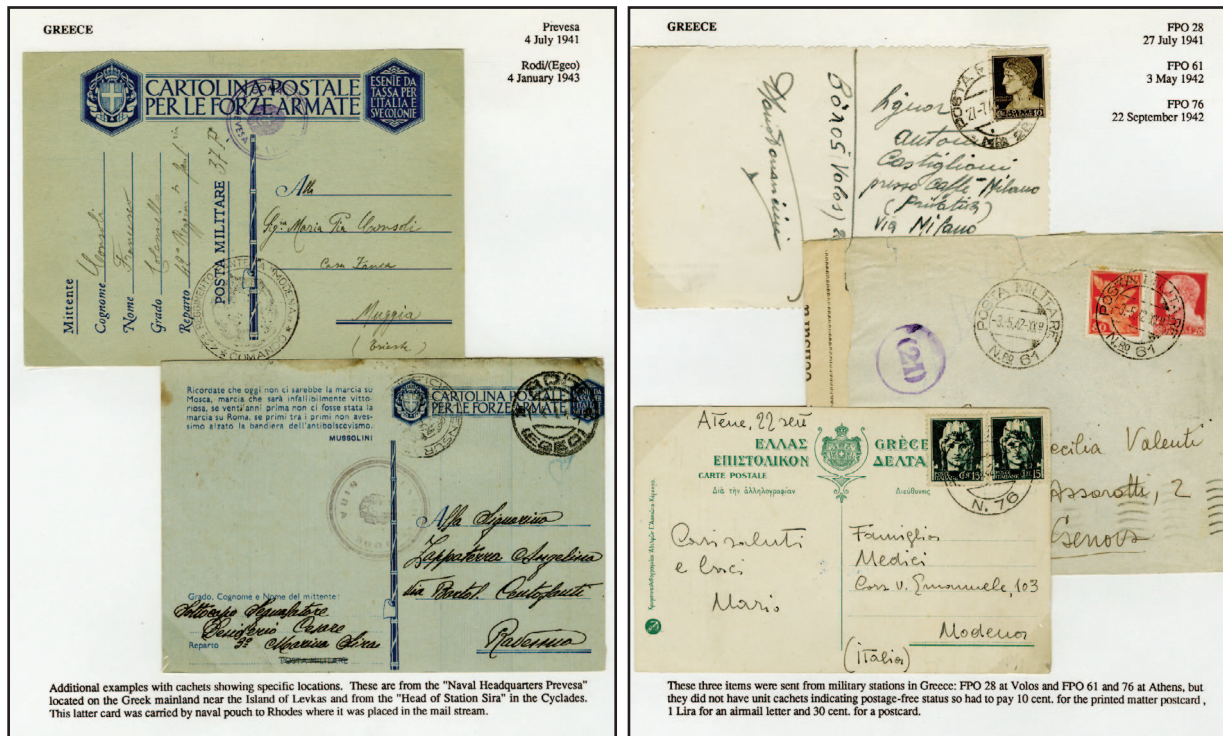 GREECE
Prevesa
4 July 1941
Rodi/(Egeo)
4 January 1943
CARTOLINA POSTALE
PER LE FORZE ARMATE
ESENTE DA
TASSA PER
L'ITALIA E
SVE COLONIE
PREVESA
Mittente
Cognome Consoli
Nome Francesco
Grado Colonnello
Reparto
POSTA MILITARE 37 P
Alla
Sig.na Maria Pia Consoli
Casa Zanea
Muggia
(Trieste)
COMANDO
Ricordate che oggi non ci sarebbe la marcia su
Mosca, marcia che sarà infallibilmente vitto-
riosa, se venti anni prima non ci fosse stata la
marcia su Roma, se primi tra i primi non aves-
simo alzato la bandiera dell'antibolscevismo.
MUSSOLINI
CARTOLINA POSTALE
PER LE FORZE ARMATE
(EGEO)
Alla Signorina
Zappaterra Angelina
via
Ravenna
Grado, Cognome e Nome del mittente:
Sottocapo Segnalatore
Desiderio Cesare
Reparto 3ª Marina Sira
POSTA MILITARE
Additional examples with cachets showing specific locations. These are from the "Naval Headquarters Prevesa"
located on the Greek mainland near the Island of Levkas and from the "Head of Station Sira" in the Cyclades.
This latter card was carried by naval pouch to Rhodes where it was placed in the mail stream.
GREECE
FPO 28
27 July 1941
FPO 61
3 May 1942
FPO 76
22 September 1942
Signor
Antonio
Castiglioni
presso Caffè Milano
Via Milano
censura
(21)
POSTA MILITARE
-3.5.42-XX
N.RO 61
POSTA MILITARE
-3.5.42-XX
N.RO 61
Cecilia Valenti
Assarotti, 2
Genova
Atene, 22 sett
ΕΛΛΑΣ
GRÈCE
ΕΠΙΣΤΟΛΙΚΟΝ
ΔΕΛΤΑ
CARTE POSTALE
Διὰ τὴν ἀλληλογραφίαν
Διεύθυνσις
N. 76
Cari saluti
e baci
Mario
Famiglia
Medici
Corso V. Emanuele, 103
Modena
(Italia)
These three items were sent from military stations in Greece: FPO 28 at Volos and FPO 61 and 76 at Athens, but
they did not have unit cachets indicating postage-free status so had to pay 10 cent. for the printed matter postcard ,
1 Lira for an airmail letter and 30 cent. for a postcard.